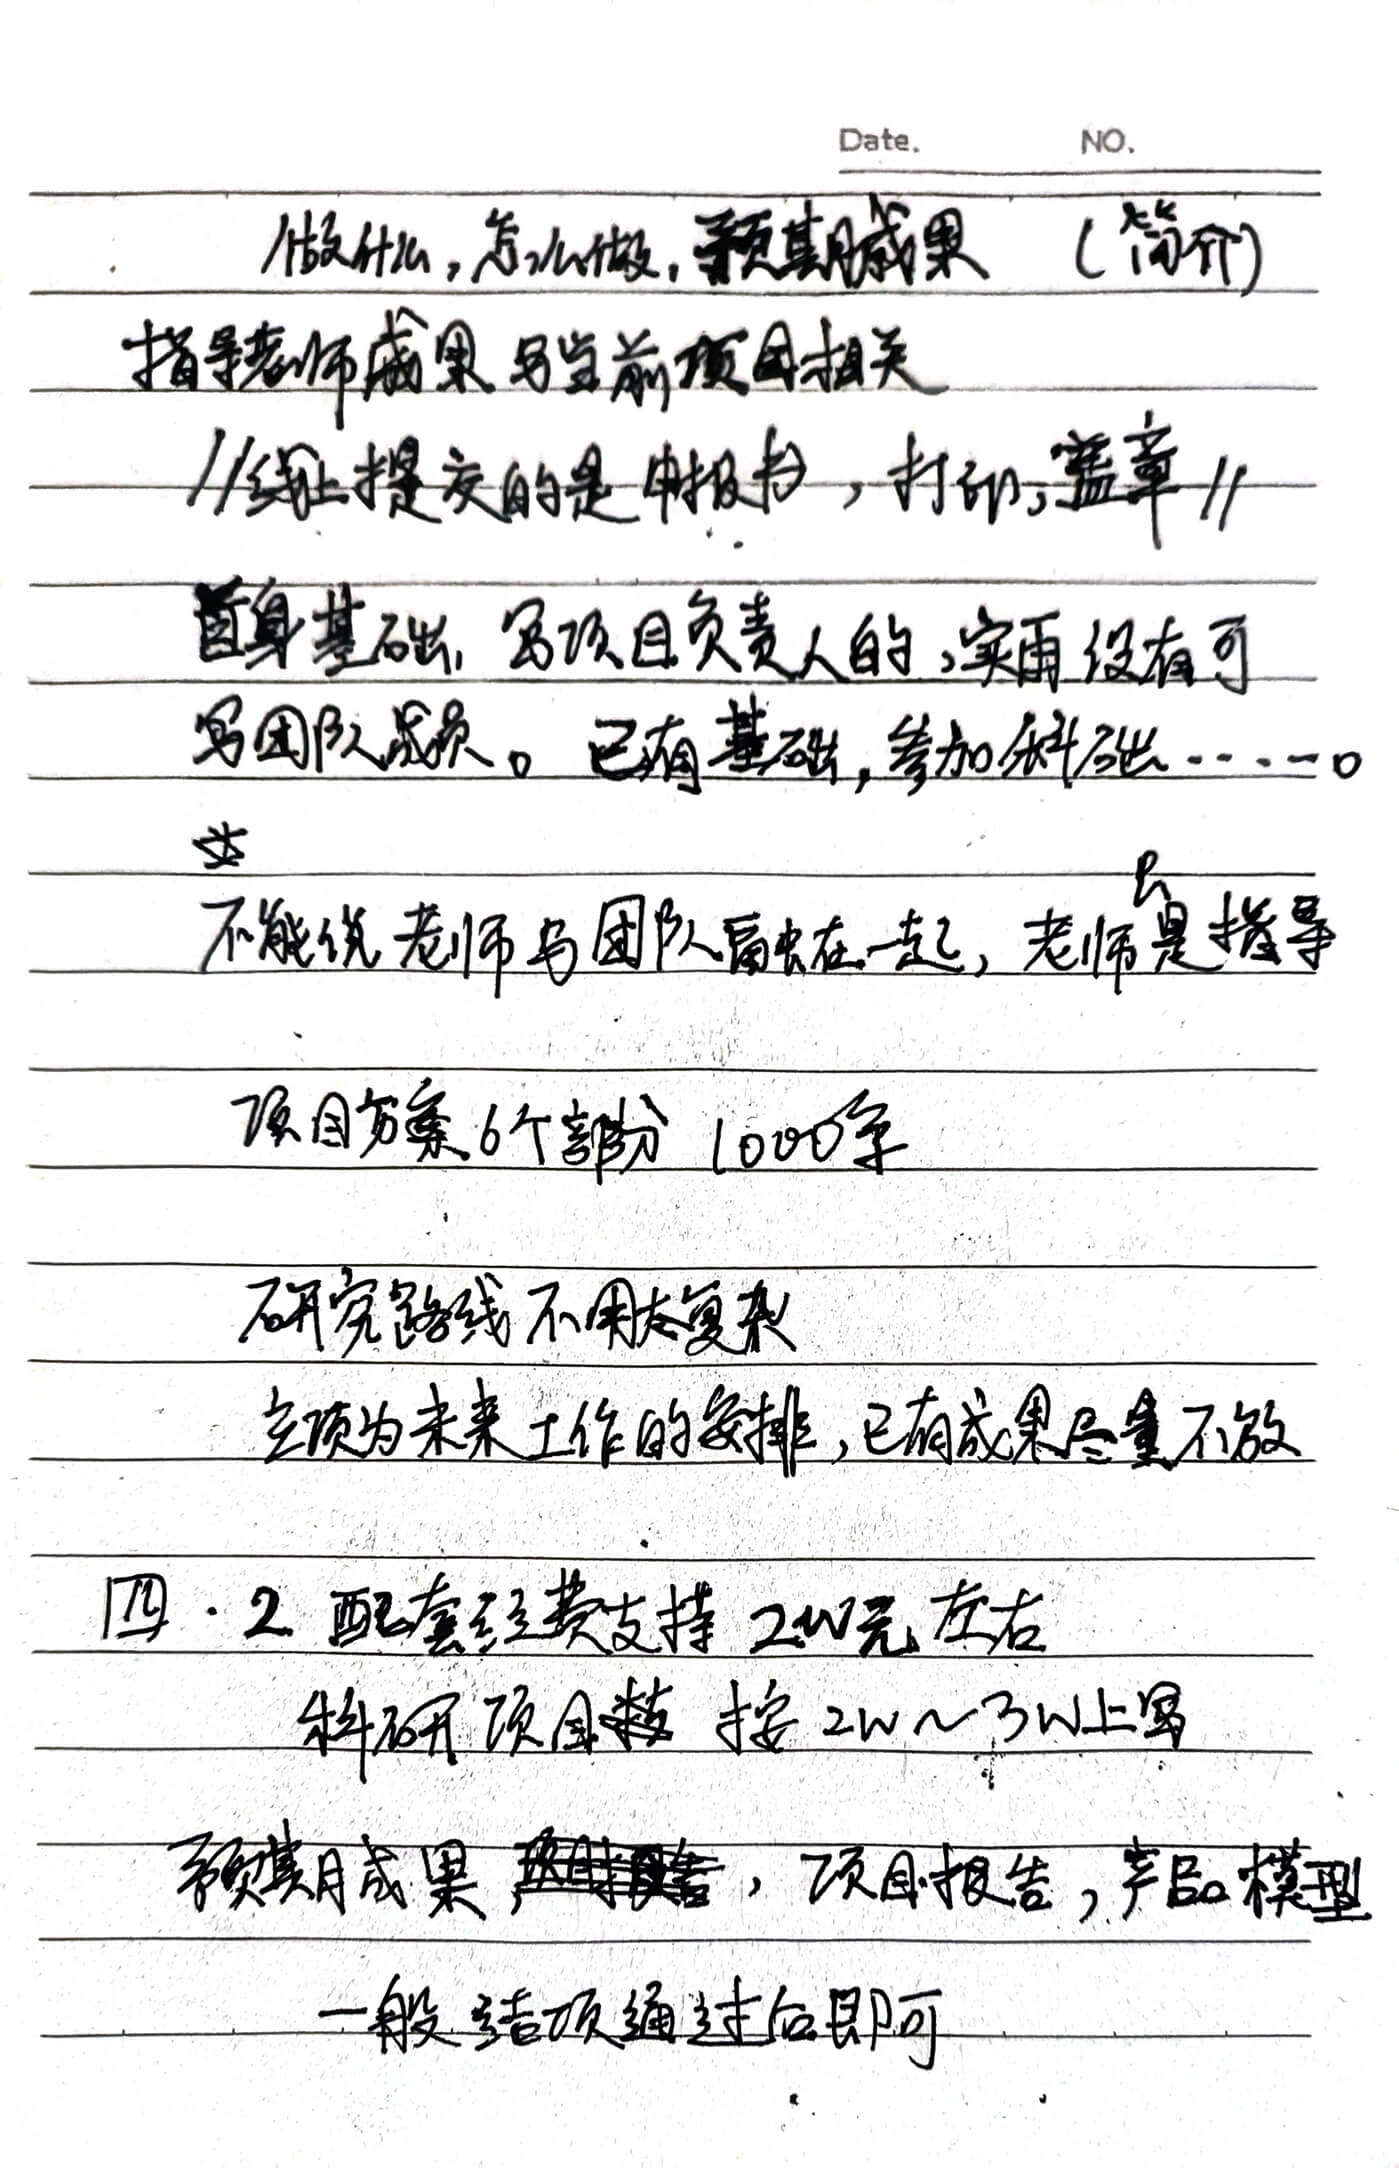 Date. NO.
做什么，怎么做，预期成果 （简介）
指导老师成果 写当前项目相关
//线上提交的是申报书，打印，盖章//
自身基础，写项目负责人的，实再没有可
写团队成员。已有基础，参加科础……。
☆
不能说老师与团队 在一起，老师只是指导
项目方案 6个部份 1000字
研究路线不用太复杂
立项为未来工作的安排，已有成果尽量不放
四.2 配套经费支持 2W元左右
科研项目数 按2W～3W上写
预期成果，项目报告，产品模型
一般结项通过后即可